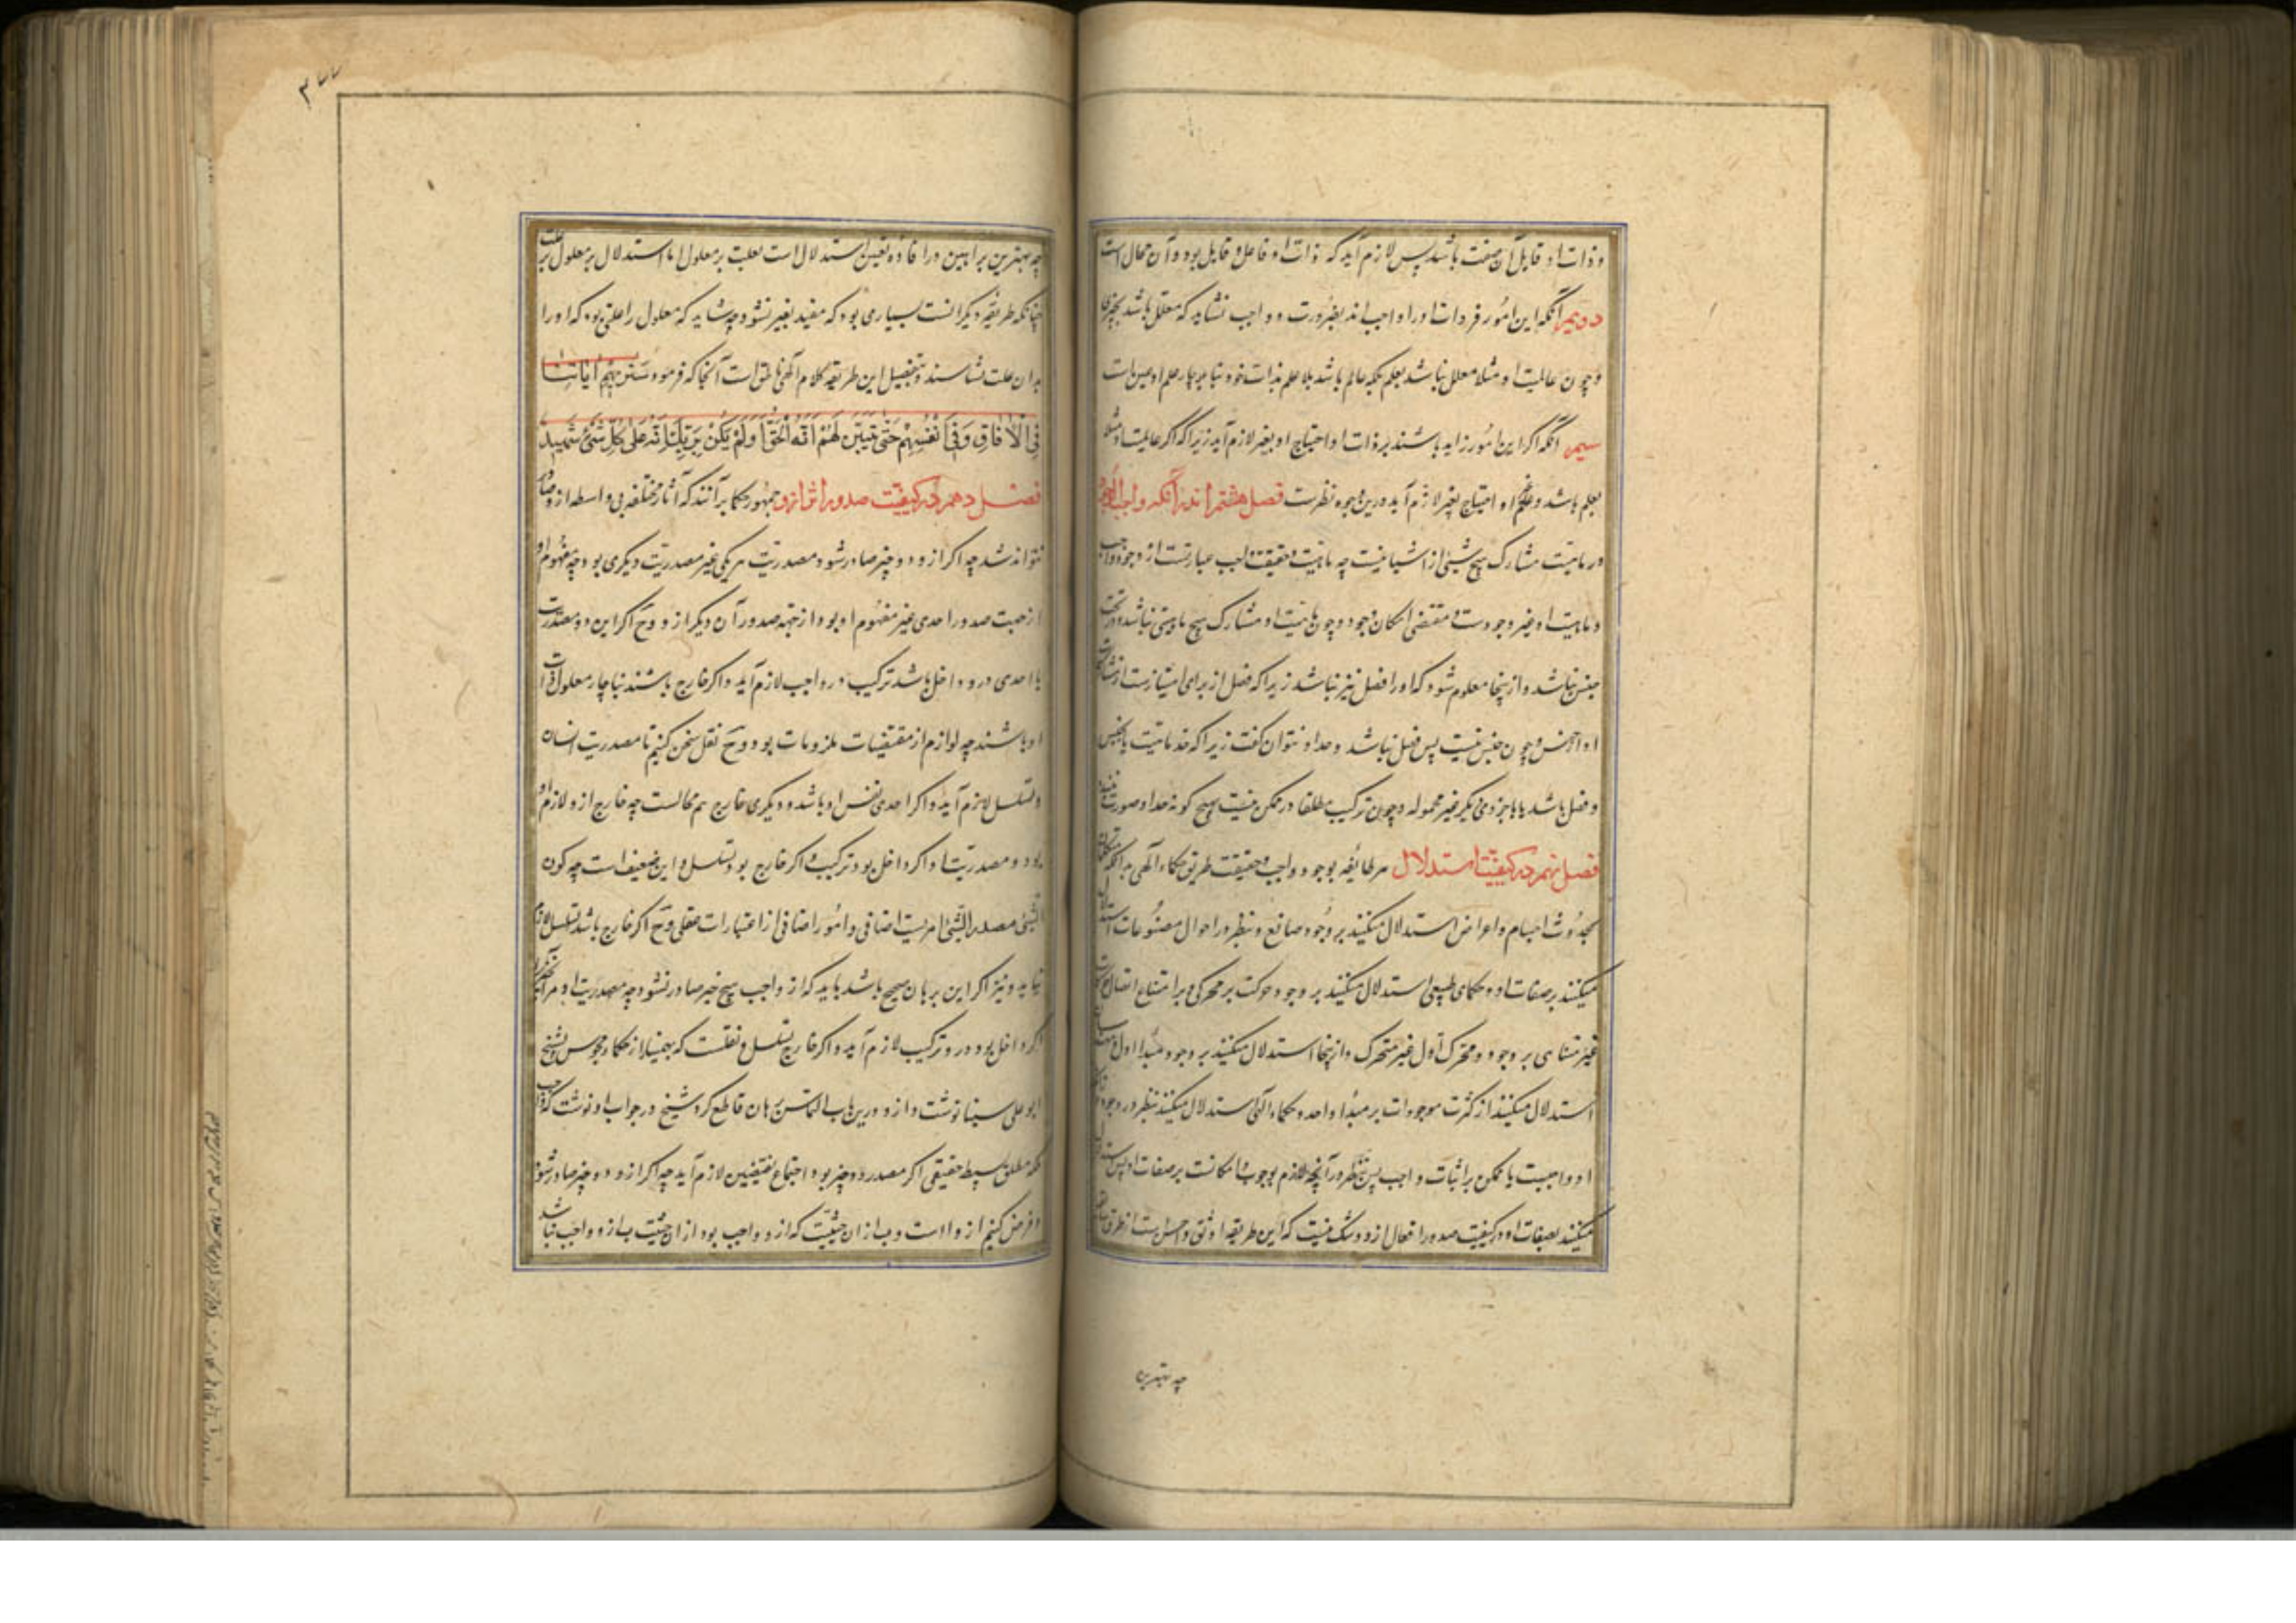 و ذات او قابل آن صفت باشد پس لازم آید که ذات او فاعل و قابل بود و آن محالست
دویم آنکه این امور فردات او را واجب اند بضرورت و واجب نشاید که معلل باشد بچیزی
و چون عالمیت او مثلا معلل نباشد بعلم بلکه عالم باشد بلا علم بذات خود بناچار علم او عین ذات
سیم آنکه اگر این امور زاید باشند بر ذات او احتیاج او بغیر لازم آید زیرا که اگر عالمیت او مثلا
بعلم باشد و علم غیر او احتیاج بغیر لازم آید و درین وجوه نظرست فصل هشتم اندر آنکه واجب الوجود
در ماهیت مشارک هیچ شیئی از اشیا نیست چه ماهیت و حقیقت واجب عبارتست از وجود واجب
و ماهیت او غیر وجودست و مقتضی امکان وجود و چون ماهیت او مشارک هیچ ماهیتی نباشد در تحت
جنس نباشد و از اینجا معلوم شود که او را فصل نیز نباشد زیرا که فصل از برای امتیازست از مشارکات
او در جنس و چون جنس نیست پس فصل نباشد و حد او نتوان گفت زیرا که حد ماهیت یا بجنس
و فصل باشد یا باجزء دیگر غیر محموله و چون ترکیب مطلقا در ممکن نیست بهیچ گونه حد او صورت نبندد
فصل نهم در کیفیت استدلال هر طائفه بوجود واجب و حقیقت طریق حکماء الهی بدانکه متکلمان
بحدوث اجسام و اعراض استدلال میکنند بر وجود صانع و بنظر در احوال مصنوعات استدلال
میکنند بر صفات او و حکمای طبیعی استدلال میکنند بر وجود حرکت بر محرکی و بر امتناع اتصال محرکات
غیر متناهی بر وجود محرک اول غیر متحرک و از اینجا استدلال میکنند بر وجود مبدأ اول و
استدلال میکنند از کثرت موجودات بر مبدأ واحد و حکماء الهی استدلال میکنند بنظر در وجود
او واجبست یا ممکن بر اثبات واجب پس بنظر در آنچه لازم وجوب و امکانست بر صفات او پس استدلال
میکنند بصفات او در کیفیت صدور افعال ازو و شک نیست که این طریقه اوثق و احسن است از طرق
چه بهترین
۳۷۷
چه بهترین براهین در افاده تعین استدلال است بعلت بر معلول اما استدلال بر معلول بر علت
چنانکه طریقه دیگرانست بسیاری بود که مفید یقین نشود چه شاید که معلول را علتی بود که او را
بدان علت نشناسند و بتفصیل این طریقه کلام الهی ناطق است آنجا که فرمود سَنُرِيهِمْ آيَاتِنَا
فِي الْآفَاقِ وَفِي أَنْفُسِهِمْ حَتَّى يَتَبَيَّنَ لَهُمْ أَنَّهُ الْحَقُّ أَوَلَمْ يَكْفِ بِرَبِّكَ أَنَّهُ عَلَى كُلِّ شَيْءٍ شَهِيدٌ
فصل دهم در کیفیت صدور اثر ازو جمهور حکما برآنند که آثار مختلفه بی واسطه ازو صادر
نتواند شد چه اگر ازو دو چیز صادر شود مصدریت هر یکی غیر مصدریت دیگری بود چه مفهوم او
از جهت صدور احدی غیر مفهوم او بود از جهة صدور آن دیگر ازو و ح اگر این دو مصدریت
یا احدی درو داخل باشد ترکیب در واجب لازم آید و اگر خارج باشند بناچار معلول ذات
او باشند چه لوازم از مقتضیات ملزومات بود و ح نقل سخن کنیم تا مصدریت ایشان
و تسلسل لازم آید و اگر احدی نفس او باشد و دیگری خارج هم محالست چه خارج ازو لازم او
بود و مصدریت او اگر داخل بود ترکیب و اگر خارج بود تسلسل و این ضعیف است چه کون
الشیٔ مصدرا لشیٔ امریست اضافی و امور اضافی از اعتبارات عقلی و ح اگر خارج باشد تسلسل لازم
نیاید و نیز اگر این برهان صحیح باشد باید که از واجب هیچ چیز صادر نشود چه مصدریت او مر آنچیز را
اگر داخل بود درو ترکیب لازم آید و اگر خارج تسلسل و نقلست که بهمنیار از حکماء مجوس بشیخ
ابو علی سینا نوشت و ازو درین باب التماس برهان قاطع کرد شیخ در جواب او نوشت که واحد
مطلق بسیط حقیقی اگر مصدر دو چیز بود اجتماع نقیضین لازم آید چه اگر ازو دو چیز صادر شود
و فرض کنیم ازو ا است و ب از ان حیثیت که ازو ا واجب بود از ان حیثیت ب ازو واجب نباشد